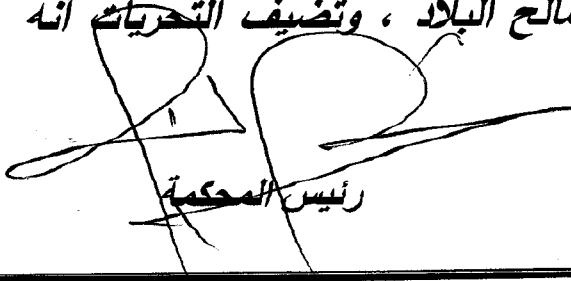 صالح البلاد ، وتضيف التحريات انه
رئيس المحكمة